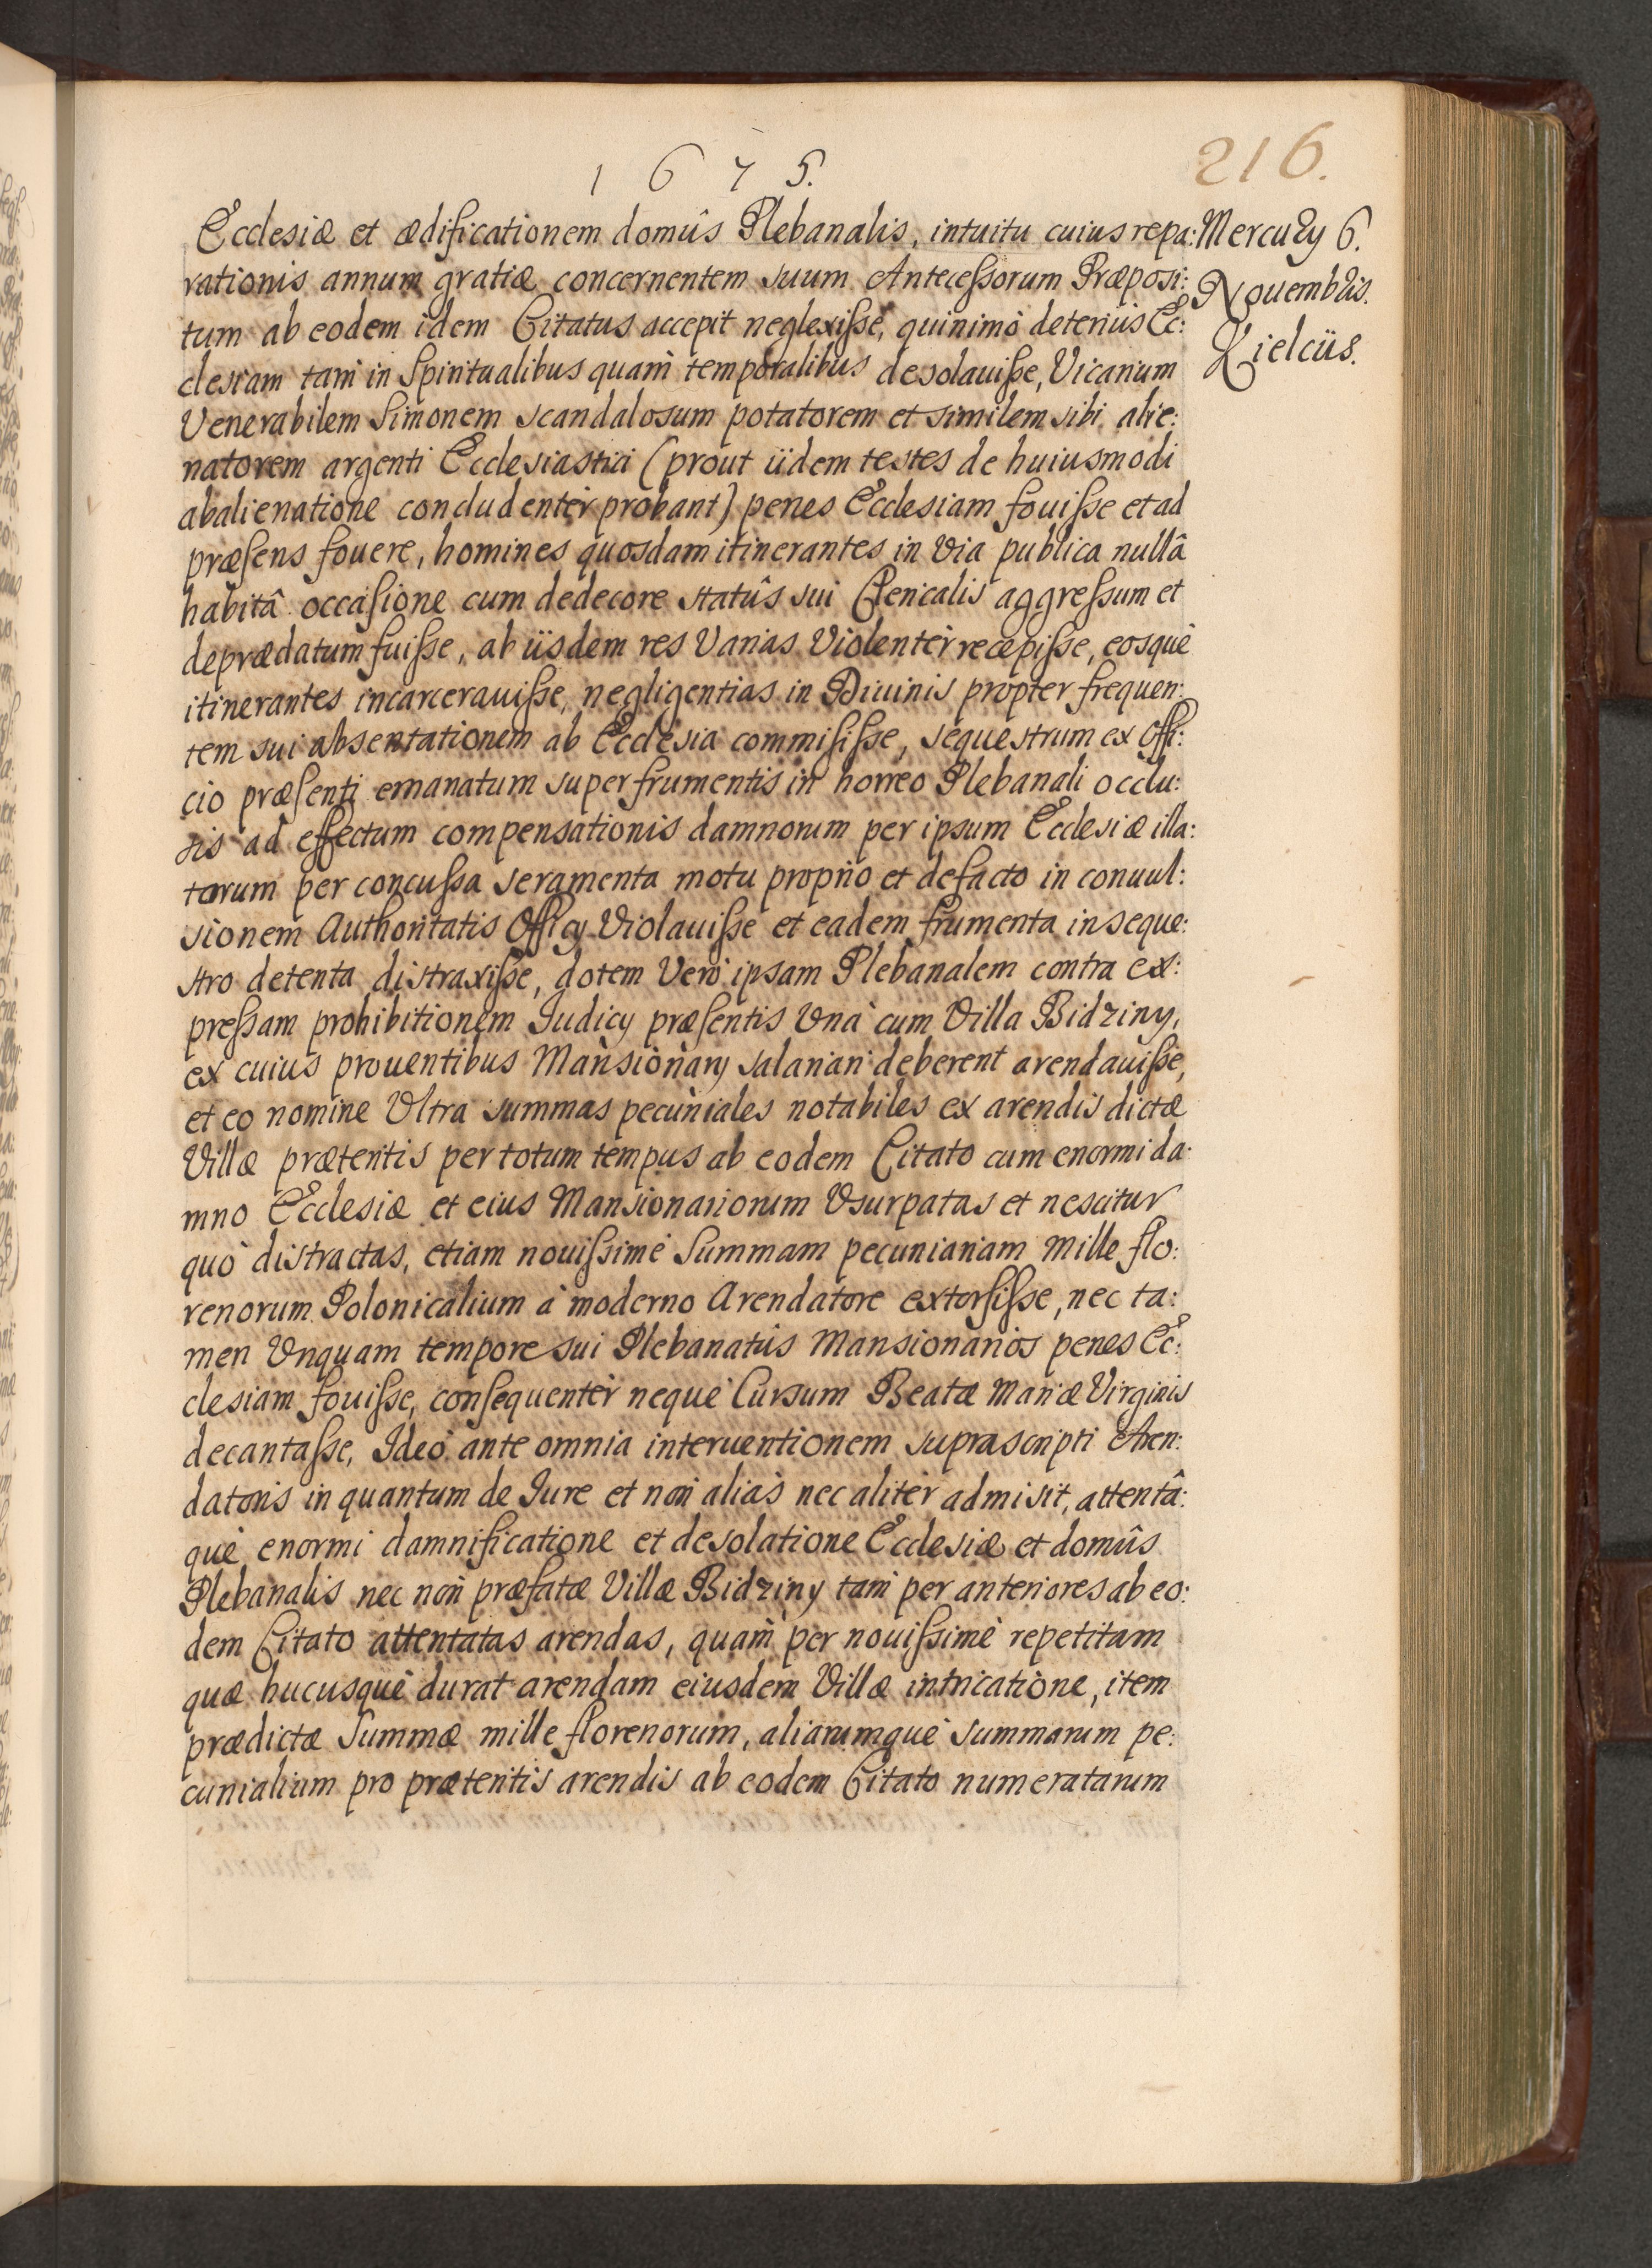 1675.
216.
Mercurij 6.
Nouembris.
Kielciis.
Ecclesiæ et ædificationem domûs Plebanalis, intuitu cuius repa:
rationis annum gratiæ concernentem suum Antecessorum Præposi:
tum ab eodem idem Citatus accepit neglexisse, quinimò deterius Ec:
clesiam tam in Spiritualibus quàm temporalibus desolauisse, Vicarium
Venerabilem Simonem scandalosum potatorem et similem sibi alie:
natorem argenti Ecclesiastici (prout iidem testes de huiusmodi
abalienatione concludentèr probant) penes Ecclesiam fouisse et ad
præsens fouere, homines quosdam itinerantes in Via publica nullâ
habitâ occasione cum dedecore statûs sui Clericalis aggressum et
deprædatum fuisse, ab iisdem res Varias Violentèr recepisse, eosquè
itinerantes incarcerauisse, negligentias in Diuinis propter frequen:
tem sui absentationem ab Ecclesia commisisse, sequestrum ex Offi:
cio præsenti emanatum super frumentis in horreo Plebanali occlu:
sis ad effectum compensationis damnorum per ipsum Ecclesiæ illa:
torum per concussa seramenta motu proprio et defacto in conuul:
sionem Authoritatis Officij Violauisse et eadem frumenta in seque:
stro detenta distraxisse, dotem Verò ipsam Plebanalem contra ex:
pressam prohibitionem Iudicij præsentis Vnà cum Villa Bidziny,
ex cuius prouentibus Mansionarij salariari deberent arendauisse,
et eo nomine Vltra summas pecuniales notabiles ex arendis dictæ
Villæ præteritis per totum tempus ab eodem Citato cum enormi da:
mno Ecclesiæ et eius Mansionariorum Vsurpatas et nescitur
quò distractas, etiam nouissimè Summam pecuniariam mille flo:
renorum Polonicalium à moderno Arendatore extorsisse, nec ta:
men Vnquam tempore sui Plebanatûs Mansionarios penes Ec:
clesiam fouisse, consequentèr nequè Cursum Beatæ Mariæ Virginis
decantasse, Ideò ante omnia interuentionem suprascripti Aren:
datoris in quantum de Iure et non alias nec alitèr admisit, attentâ:
què enormi damnificatione et desolatione Ecclesiæ et domûs
Plebanalis nec non præfatæ Villæ Bidziny tam per anteriores ab eo:
dem Citato attentatas arendas, quàm per nouissimè repetitam
quæ hucusquè durat arendam eiusdem Villæ intricatione, item
prædictæ Summæ mille florenorum, aliarumquè summarum pe:
cunialium pro præteritis arendis ab eodem Citato numeratarum